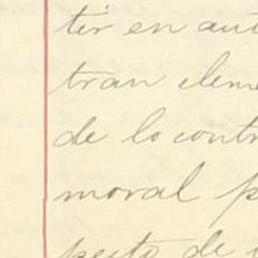 tir en aut
tran eleme
de lo contr
moral p
pecto de